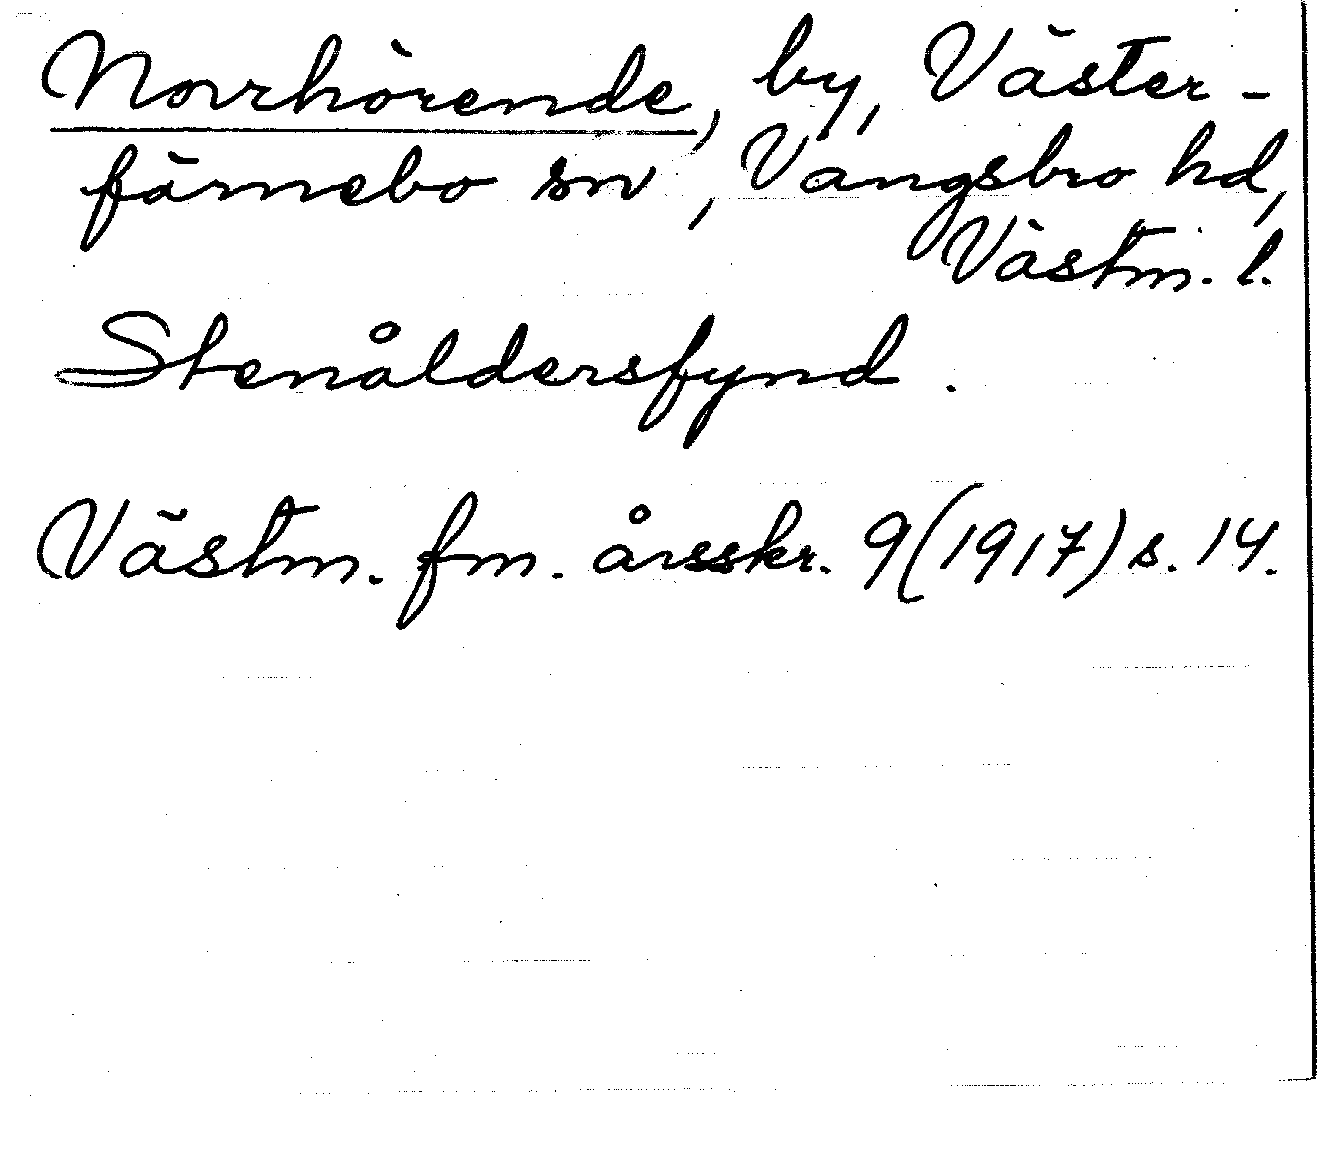 Norrhörende, by, Väster-
färnebo sn, Vangsbro hd,
Västm. l.
Stenåldersfynd.
Västm. fm. årsskr. 9(1917) s. 14.